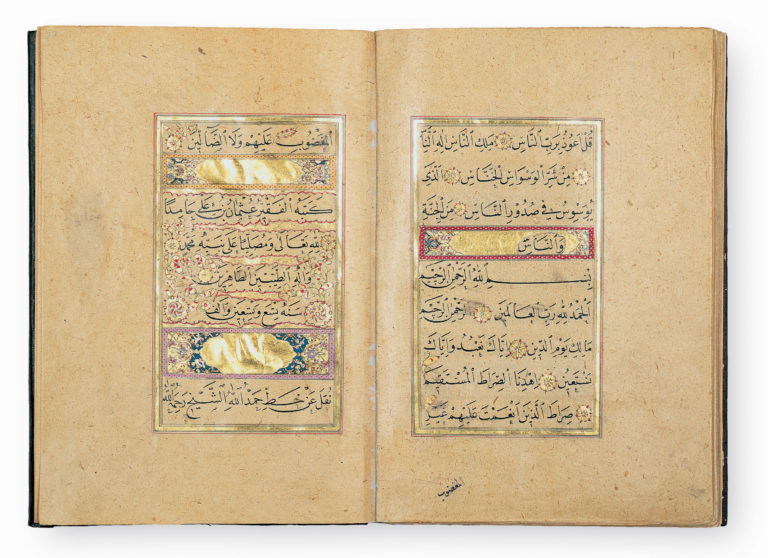 قُلْ اَعُوذُ بِرَبِّ النَّاسِ مَلِكِ النَّاسِ اِلٰهِ النَّاسِ
مِنْ شَرِّ الْوَسْوَاسِ الْخَنَّاسِ الَّذٖى
يُوَسْوِسُ فٖى صُدُورِ النَّاسِ مِنَ الْجِنَّةِ
وَالنَّاسِ
بِسْمِ اللّٰهِ الرَّحْمٰنِ الرَّحٖيمِ
اَلْحَمْدُ لِلّٰهِ رَبِّ الْعَالَمٖينَ الرَّحْمٰنِ الرَّحٖيمِ
مَالِكِ يَوْمِ الدّٖينِ اِيَّاكَ نَعْبُدُ وَاِيَّاكَ
نَسْتَعٖينُ اِهْدِنَا الصِّرَاطَ الْمُسْتَقٖيمَ
صِرَاطَ الَّذٖينَ اَنْعَمْتَ عَلَيْهِمْ غَيْرِ
المغضوب
الْمَغْضُوبِ عَلَيْهِمْ وَلَا الضَّالّٖينَ
كتبه الفقير عثمان بن علي حامدا
لله تعالى ومصليا على نبيه محمد
وآله الطيبين الطاهرين
سنه تسع وتسعين والف
نقل عن خط حمد الله الشيخ رحمه الله